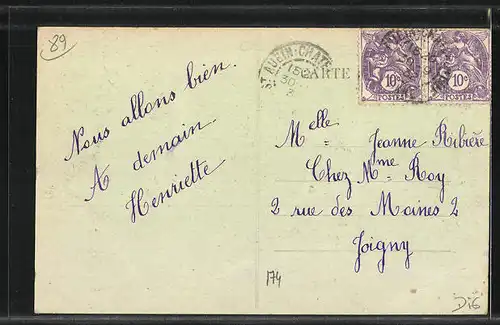 89
Nous allons bien.
A demain
Henriette
ST AUBIN-CHATE
15
30
CARTE
10c 10c
POSTES POSTES
Melle Jeanne Ribière
Chez Mme Roy
2 rue des Moines 2
Joigny
174